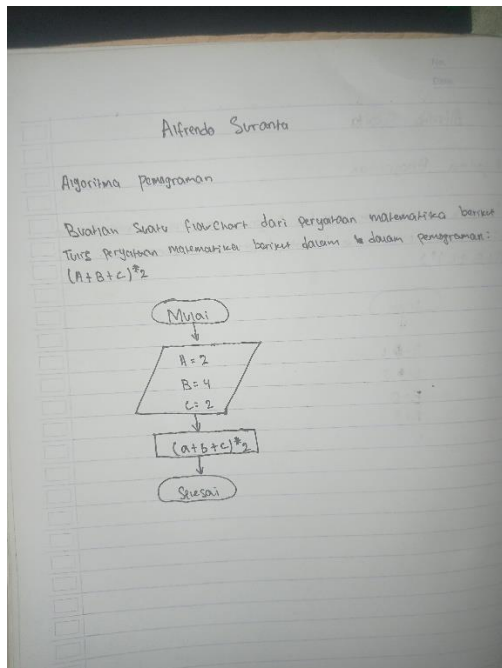 Alfrendo Suranta
Algoritma pemograman
Buatlan Suatu flowchort dari peryataan matematika berikut
Tulis peryataan matematika berikut dalam dalam pemograman:
(A+B+C)*2
Mulai
A = 2
B = 4
C = 2
(a+b+c)*2
Selesai